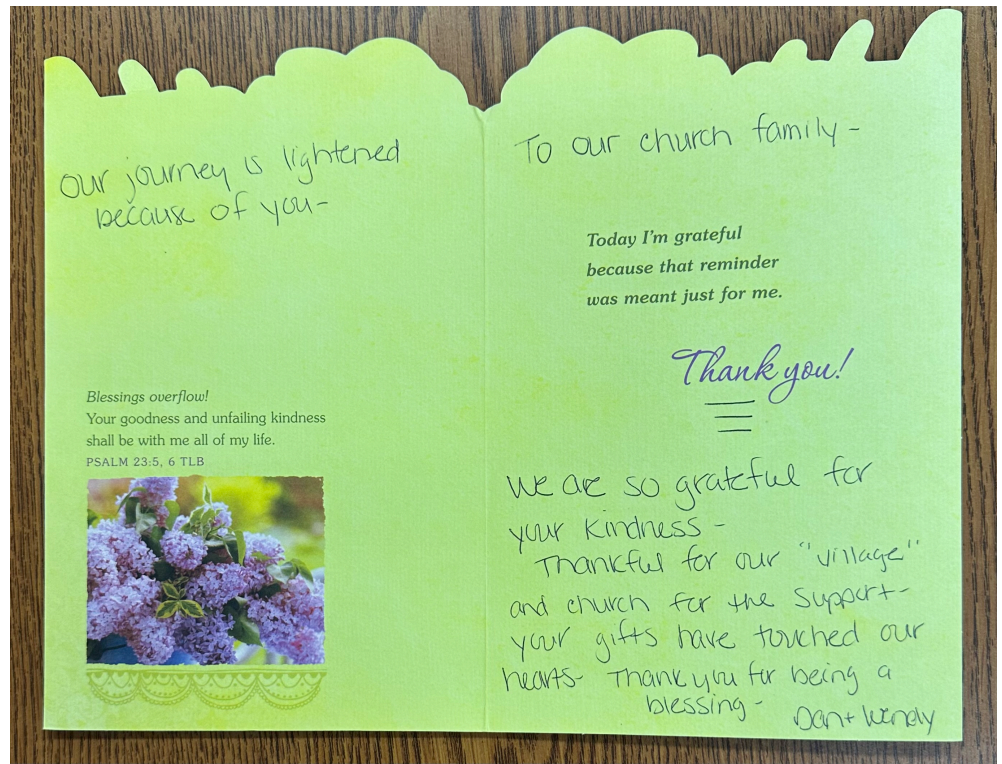 Our journey is lightened
because of you-
Blessings overflow!
Your goodness and unfailing kindness
shall be with me all of my life.
PSALM 23:5, 6 TLB
To our church family-
Today I'm grateful
because that reminder
was meant just for me.
Thank you!
We are so grateful for
your kindness-
Thankful for our "village"
and church for the support-
your gifts have touched our
hearts- Thank you for being a
blessing-
Dan + Wendy